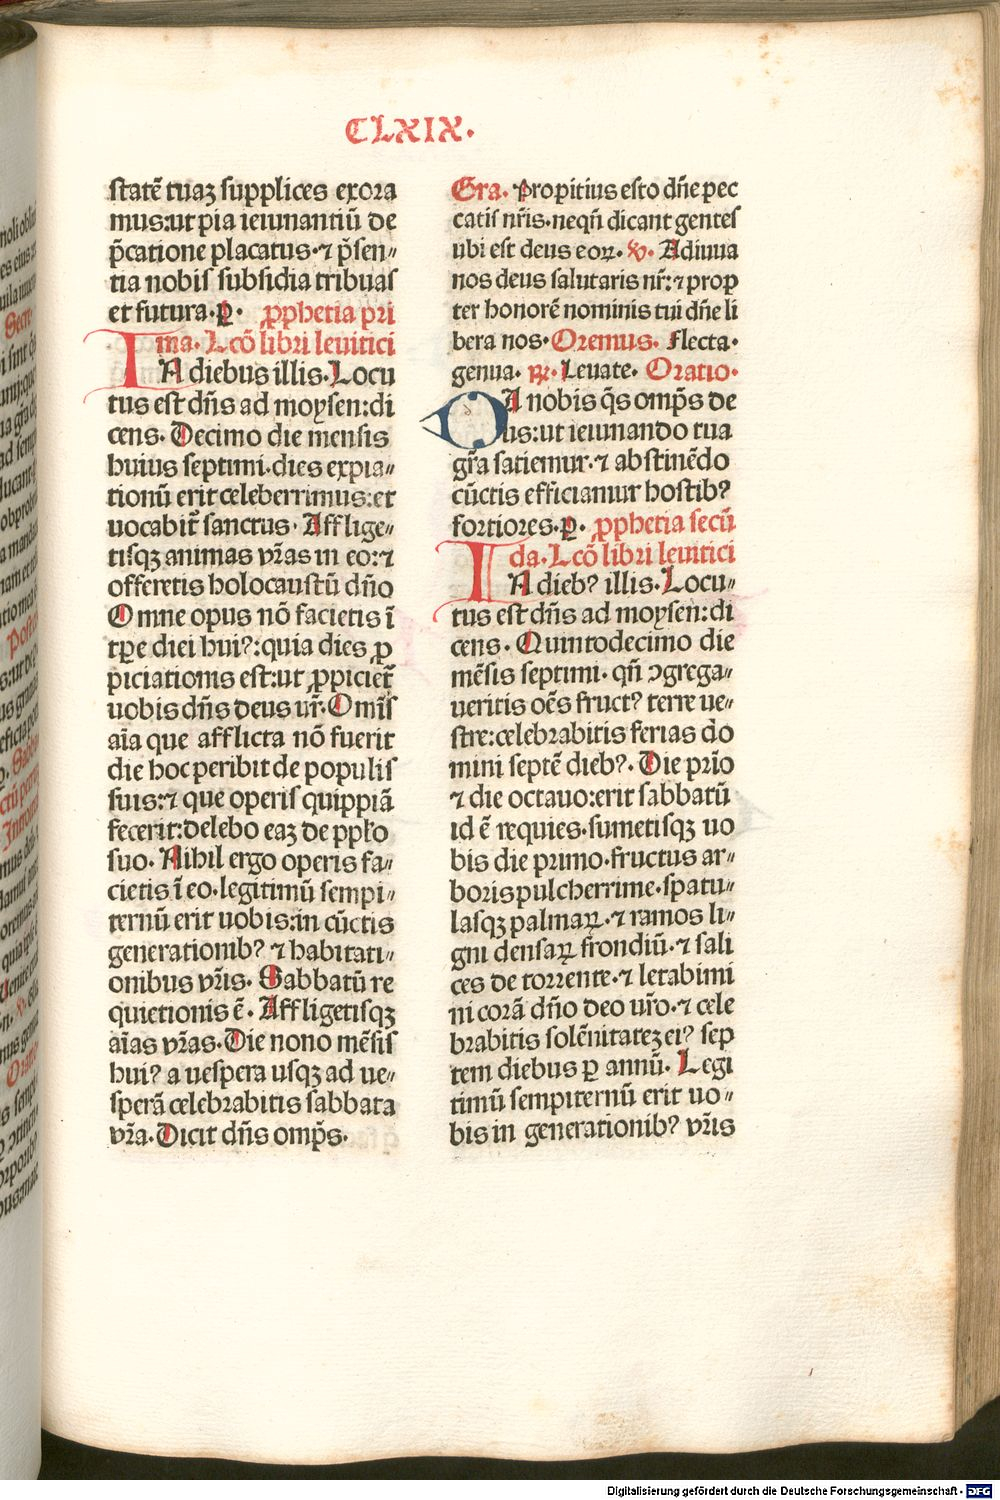 CLXIX.
statē tuaꝫ supplices exora
mus:ut pia ieiunantiū de
p̄catione placatus·⁊ p̄sen„
tia nobis subsidia tribuas
et futura.ꝑ· ꝓphetia pri
ma. Lcō libri leuitici
IN diebus illis.Locu
tus est dn̄s ad moysen:di
cens. Decimo die mensis
huius septimi.dies expia„
tionū erit celeberrimus:et
uocabit᷑ sanctus. Afflige„
tisqꝫ animas vr̄as in eo:⁊
offeretis holocaustū dn̄o
Omne opus nō facietis ī
tꝑe diei huiꝰ:quia dies ꝓ
piciationis est:ut ꝓpiciet᷑
uobis dn̄s deus ur̄.Omīs
aīa que afflicta nō fuerit
die hoc peribit de populis
suis:⁊ que operis quippiā
fecerit:delebo eaꝫ de ppl̄o
suo. Nihil ergo operis fa„
cietis ī eo.legitimū sempi„
ternū erit uobis:in cūctis
generationibꝰ ⁊ habitati„
onibus vr̄is. Sabbatū re
quietionis ē. Affligetisqꝫ
aīas vr̄as.Die nono mēsis
huiꝰ a uespera usqꝫ ad ue„
sperā celebrabitis sabbata
vr̄a.Dicit dn̄s omp̄s.
Gra. Propitius esto dn̄e pec
catis nr̄is.neqn̄ dicant gentes
ubi est deus eoꝝ. ℣. Adiuua
nos deus salutaris nr̄:⁊ prop
ter honorē nominis tui dn̄e li
bera nos.Oremus. Flecta.
genua. ℞. Leuate. Oratio.
DA nobis q̄s omp̄s de
us:ut ieiunando tua
gr̄a satiemur.⁊ abstinēdo
cūctis efficiamur hostibꝰ
fortiores.ꝑ. ꝓphetia secū
da.Lcō libri leuitici
IN diebꝰ illis.Locu„
tus est dn̄s ad moysen:di
cens. Quintodecimo die
mēsis septimi. qn̄ ꝯgrega„
ueritis oēs fructꝰ terre ue„
stre:celebrabitis ferias do
mini septē diebꝰ. Die prīo
⁊ die octauo:erit sabbatū
id ē requies.sumetisqꝫ uo
bis die primo.fructus ar„
boris pulcherrime.spatu„
lasqꝫ palmaꝝ.⁊ ramos li„
gni densaꝝ frondiū.⁊ sali
ces de torrente.⁊ letabimi
ni corā dn̄o deo ur̄o.⁊ cele
brabitis solēnitateꝫ eiꝰ sep
tem diebus ꝑ annū. Legi
timū sempiternū erit uo„
bis in generationibꝰ vr̄is
Digitalisierung gefördert durch die Deutsche Forschungsgemeinschaft · DFG